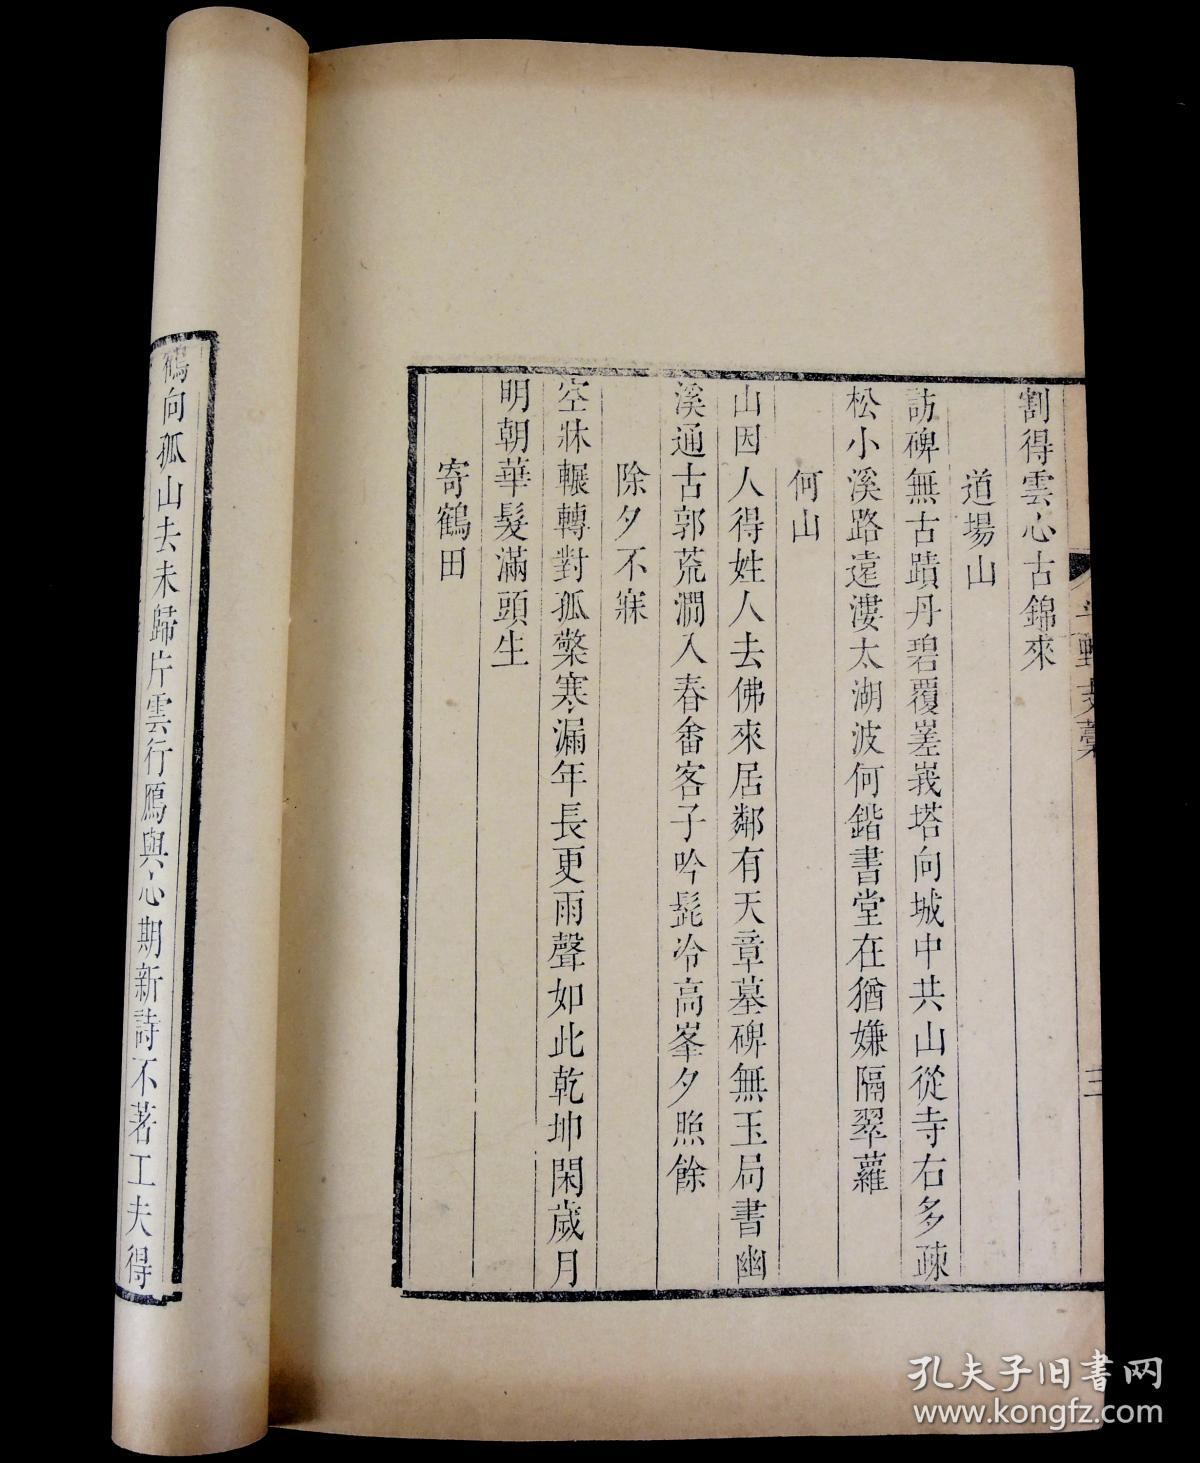 割得雲心古錦來
道場山
訪碑無古蹟丹碧覆嵳峩塔向城中共山從寺右多疎
松小溪路遠淒太湖波何鍇書堂在猶嫌隔翠蘿
何山
山因人得姓人去佛來居鄰有天章墓碑無玉局書幽
溪通古郭荒澗入春畬客子吟髭冷高峯夕照餘
除夕不寐
空牀輾轉對孤檠寒漏年長更雨聲如此乾坤閑歲月
明朝華髮滿頭生
寄鶴田
鶴向孤山去未歸片雲行鴈與心期新詩不著工夫得
三
孔夫子旧書网
www.kongfz.com